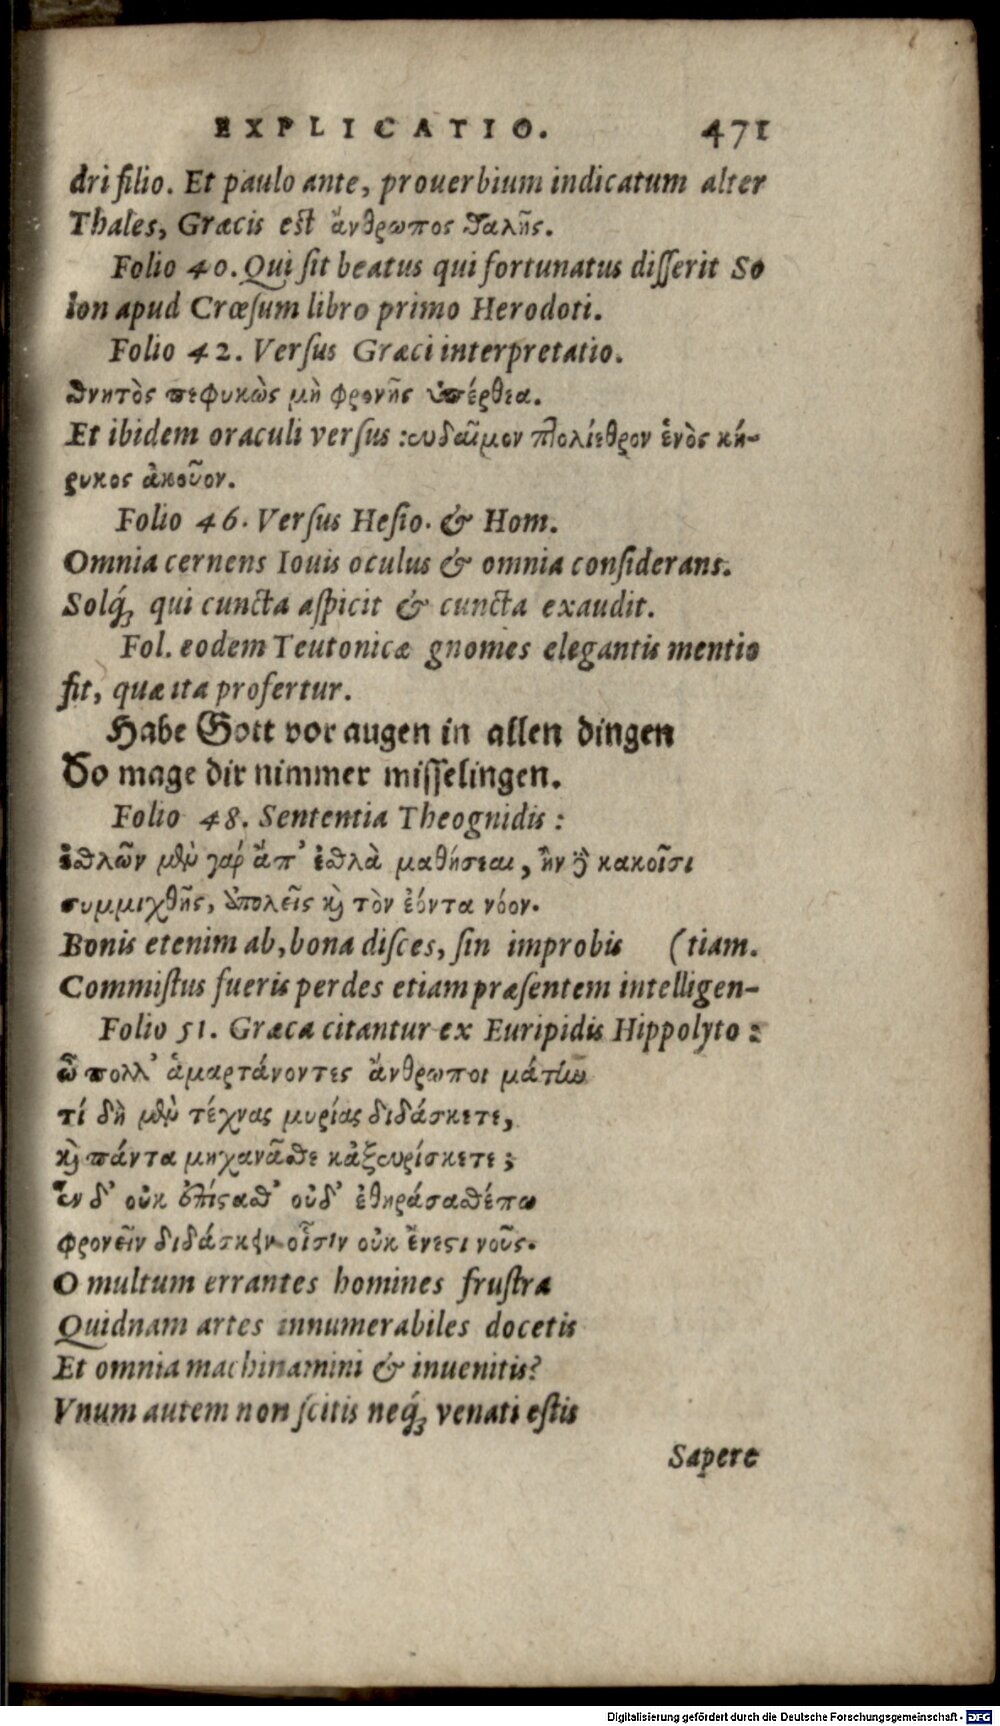 EXPLICATIO. 471
dri filio. Et paulo ante, prouerbium indicatum alter
Thales, Græcis est ἄνθρωπος θαλῆς.
Folio 40. Qui sit beatus qui fortunatus disserit So
lon apud Crœsum libro primo Herodoti.
Folio 42. Versus Græci interpretatio.
θνητὸς πεφυκὼς μὴ φρονῇς ὑπέρθεα.
Et ibidem oraculi versus : εὔδαιμον πτολίεθρον ἑνὸς κή-
ρυκος ἀκοῦον.
Folio 46. Versus Hesio. & Hom.
Omnia cernens Iouis oculus & omnia considerans.
Solq́; qui cuncta aspicit & cuncta exaudit.
Fol. eodem Teutonicæ gnomes elegantis mentio
fit, quæ ita profertur.
Habe Gott vor augen in allen dingen
So mage dir nimmer misselingen.
Folio 48. Sententia Theognidis :
ἐσθλῶν μὲν γὰρ ἄπ' ἐσθλὰ μαθήσεαι, ἢν δὲ κακοῖσι
συμμιχθῇς, ἀπολεῖς καὶ τὸν ἐόντα νόον.
Bonis etenim ab, bona disces, sin improbis (tiam.
Commistus fueris perdes etiam præsentem intelligen-
Folio 51. Græca citantur ex Euripidis Hippolyto :
ὦ πολλ' ἁμαρτάνοντες ἄνθρωποι μάτην
τί δὴ μὲν τέχνας μυρίας διδάσκετε,
καὶ πάντα μηχανᾶσθε κἀξευρίσκετε ;
ἓν δ' οὐκ ἐπίστασθ' οὐδ' ἐθηράσασθέ πω
φρονεῖν διδάσκειν οἷσιν οὐκ ἔνεστι νοῦς.
O multum errantes homines frustra
Quidnam artes innumerabiles docetis
Et omnia machinamini & inuenitis?
Vnum autem non scitis neq́; venati estis
Sapere
Digitalisierung gefördert durch die Deutsche Forschungsgemeinschaft - DFG